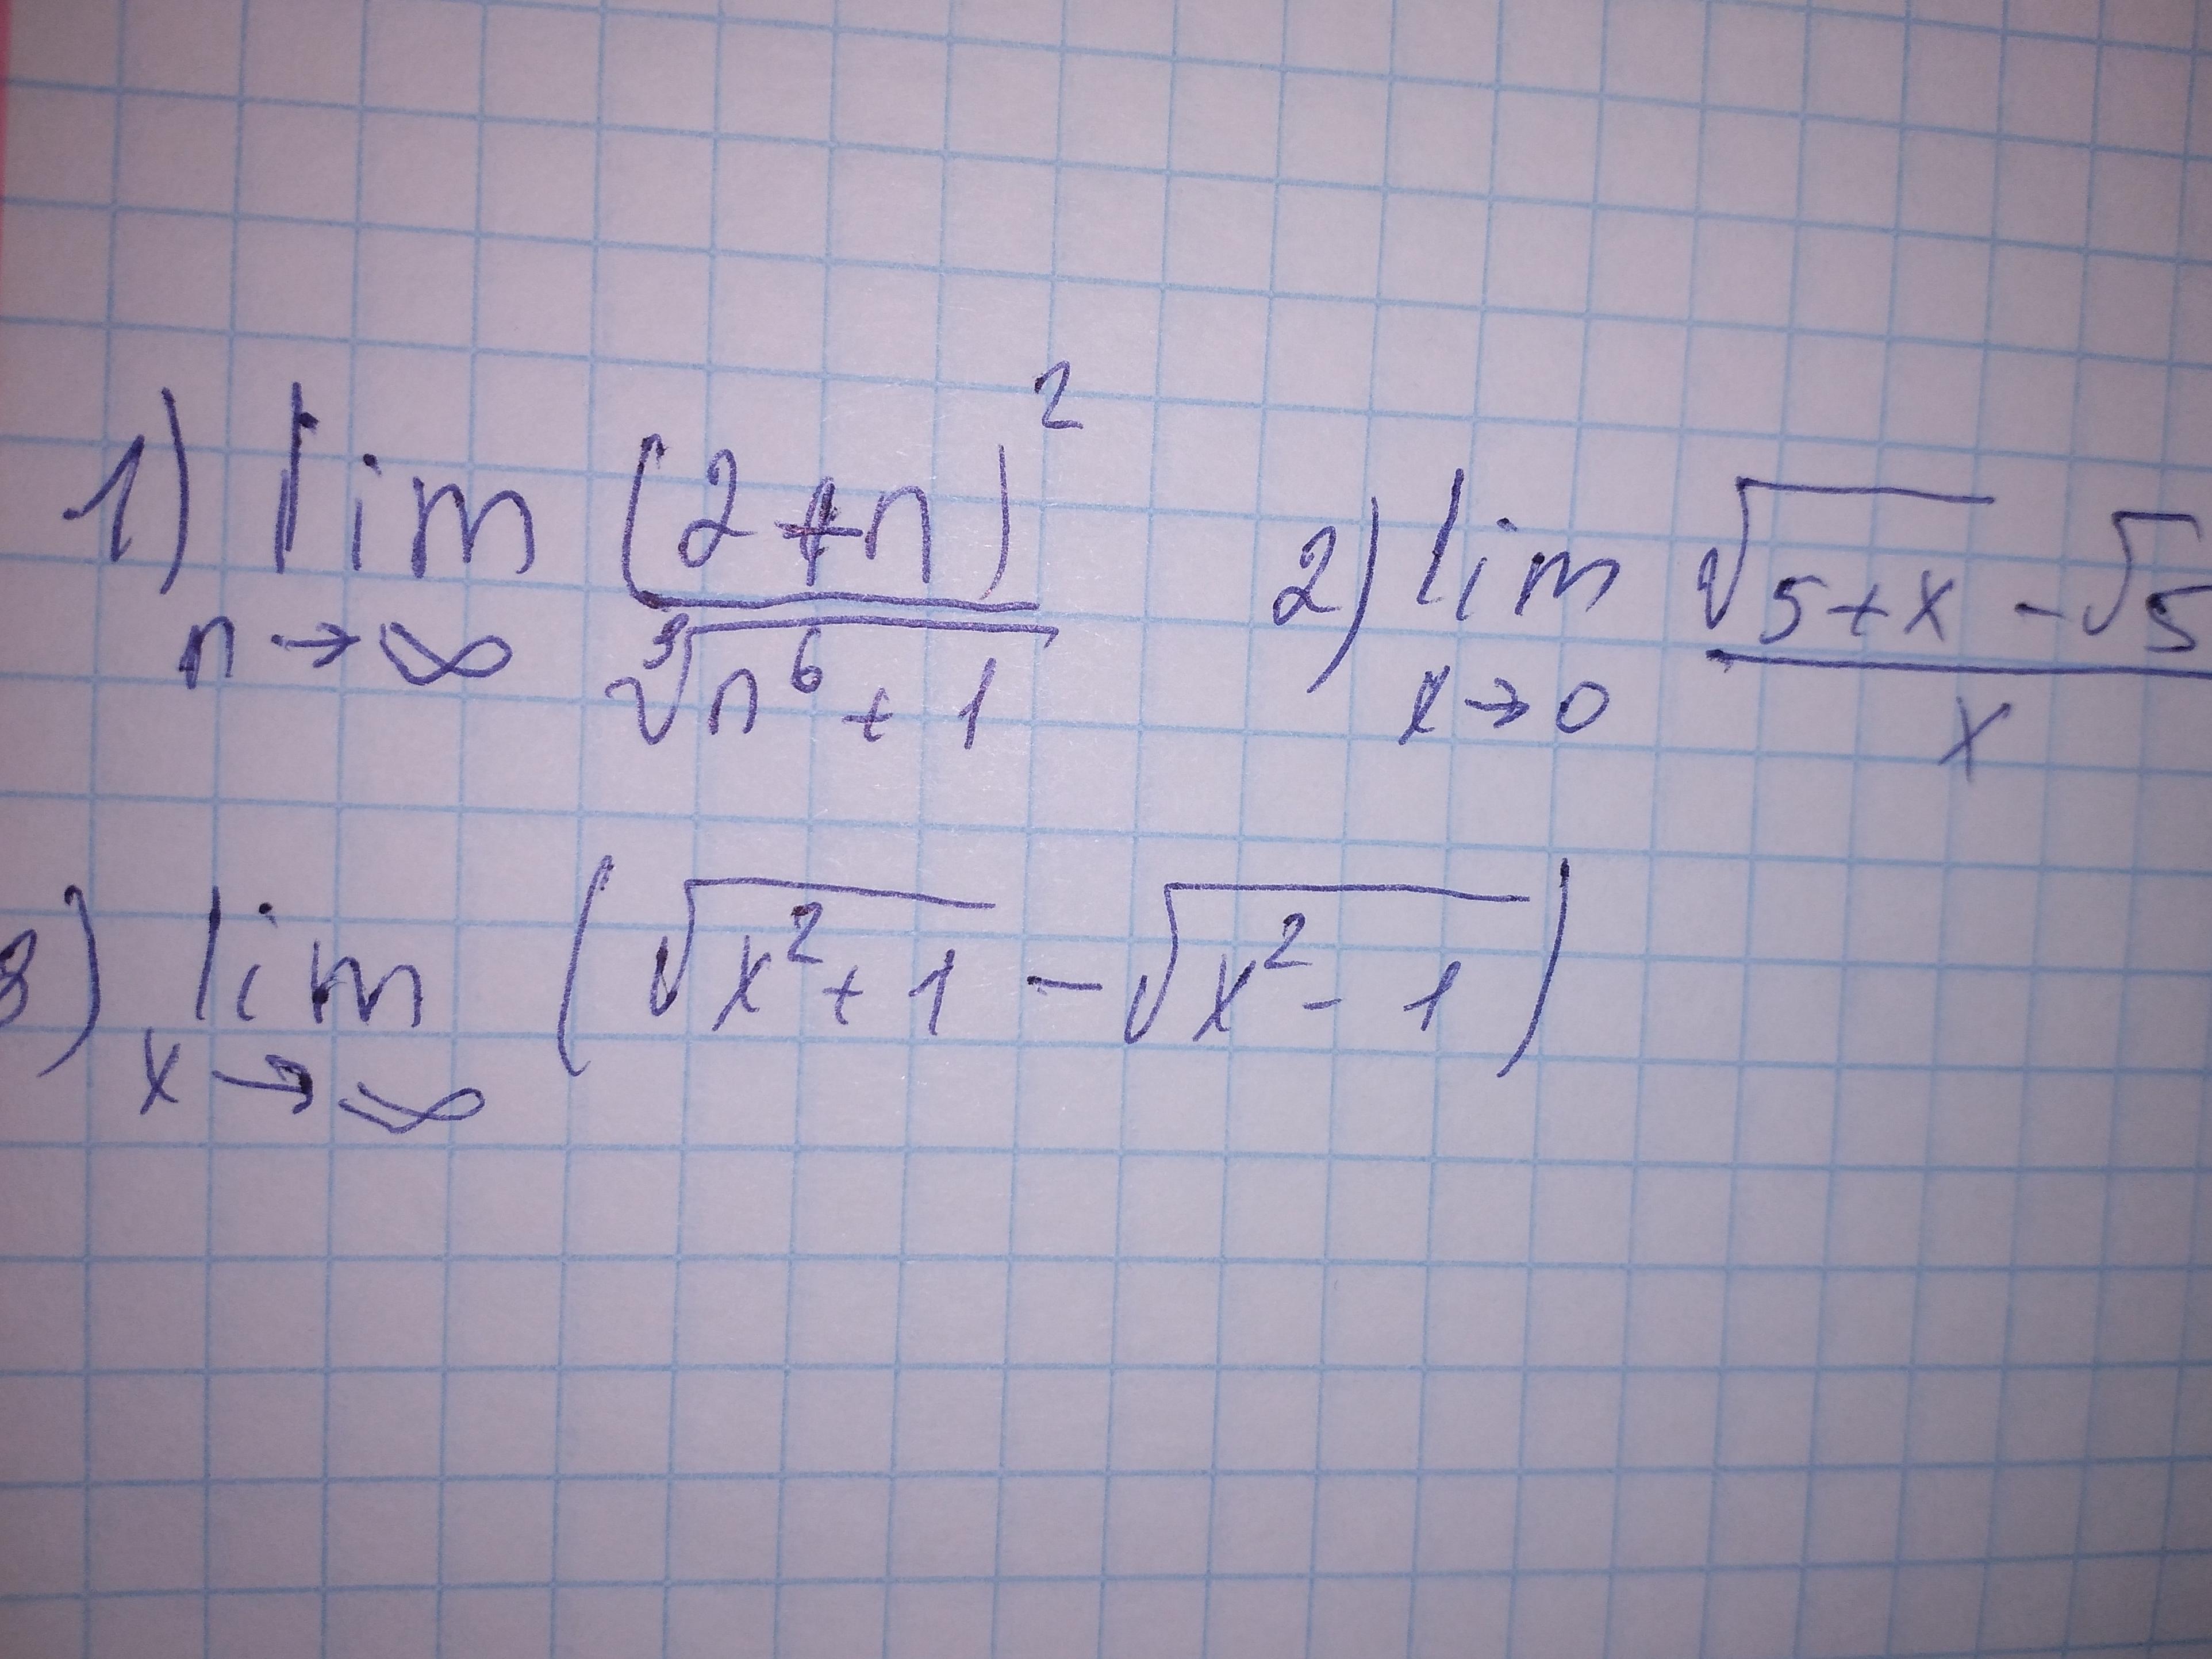 1) lim n→∞ (2+n)² / ∛(n⁶+1)
2) lim x→0 (√(5+x) - √5) / x
3) lim x→∞ (√(x²+1) - √(x²-1))